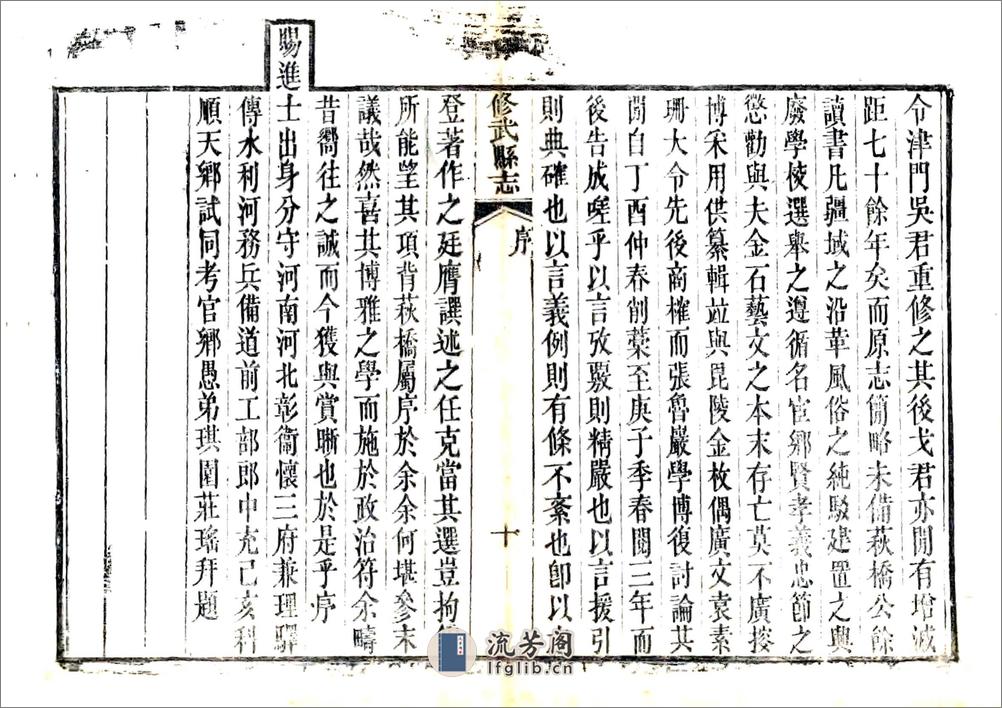 令津門吳君重修之其後戈君亦閒有增減
距七十餘年矣而原志簡略未備萩橋公餘
讀書凡疆域之沿革風俗之純駁建置之興
廢學校選舉之遵循名宦鄉賢孝義忠節之
懲勸與夫金石藝文之本末存亡莫不廣搜
博宋用供纂輯竝與毘陵金枚偶廣文袁素
珊大令先後商榷而張魯巖學博復討論其
閒自丁酉仲春削藁至庚子季春閱三年而
後告成嗟乎以言攷覈則精嚴也以言援引
則典確也以言義例則有條不紊也卽以
修武縣志
序
十
登著作之廷膺譔述之任克當其選豈拘
所能望其項背萩橋屬序於余余何堪參末
議哉然喜其博雅之學而施於政治符余疇
昔嚮往之誠而今獲與賞晰也於是乎序
賜進士出身分守河南河北彰衞懷三府兼理驛
傳水利河務兵備道前工部郎中充己亥科
順天鄉試同考官鄉愚弟琪園莊瑤拜題
流芳阁
lfglib.cn